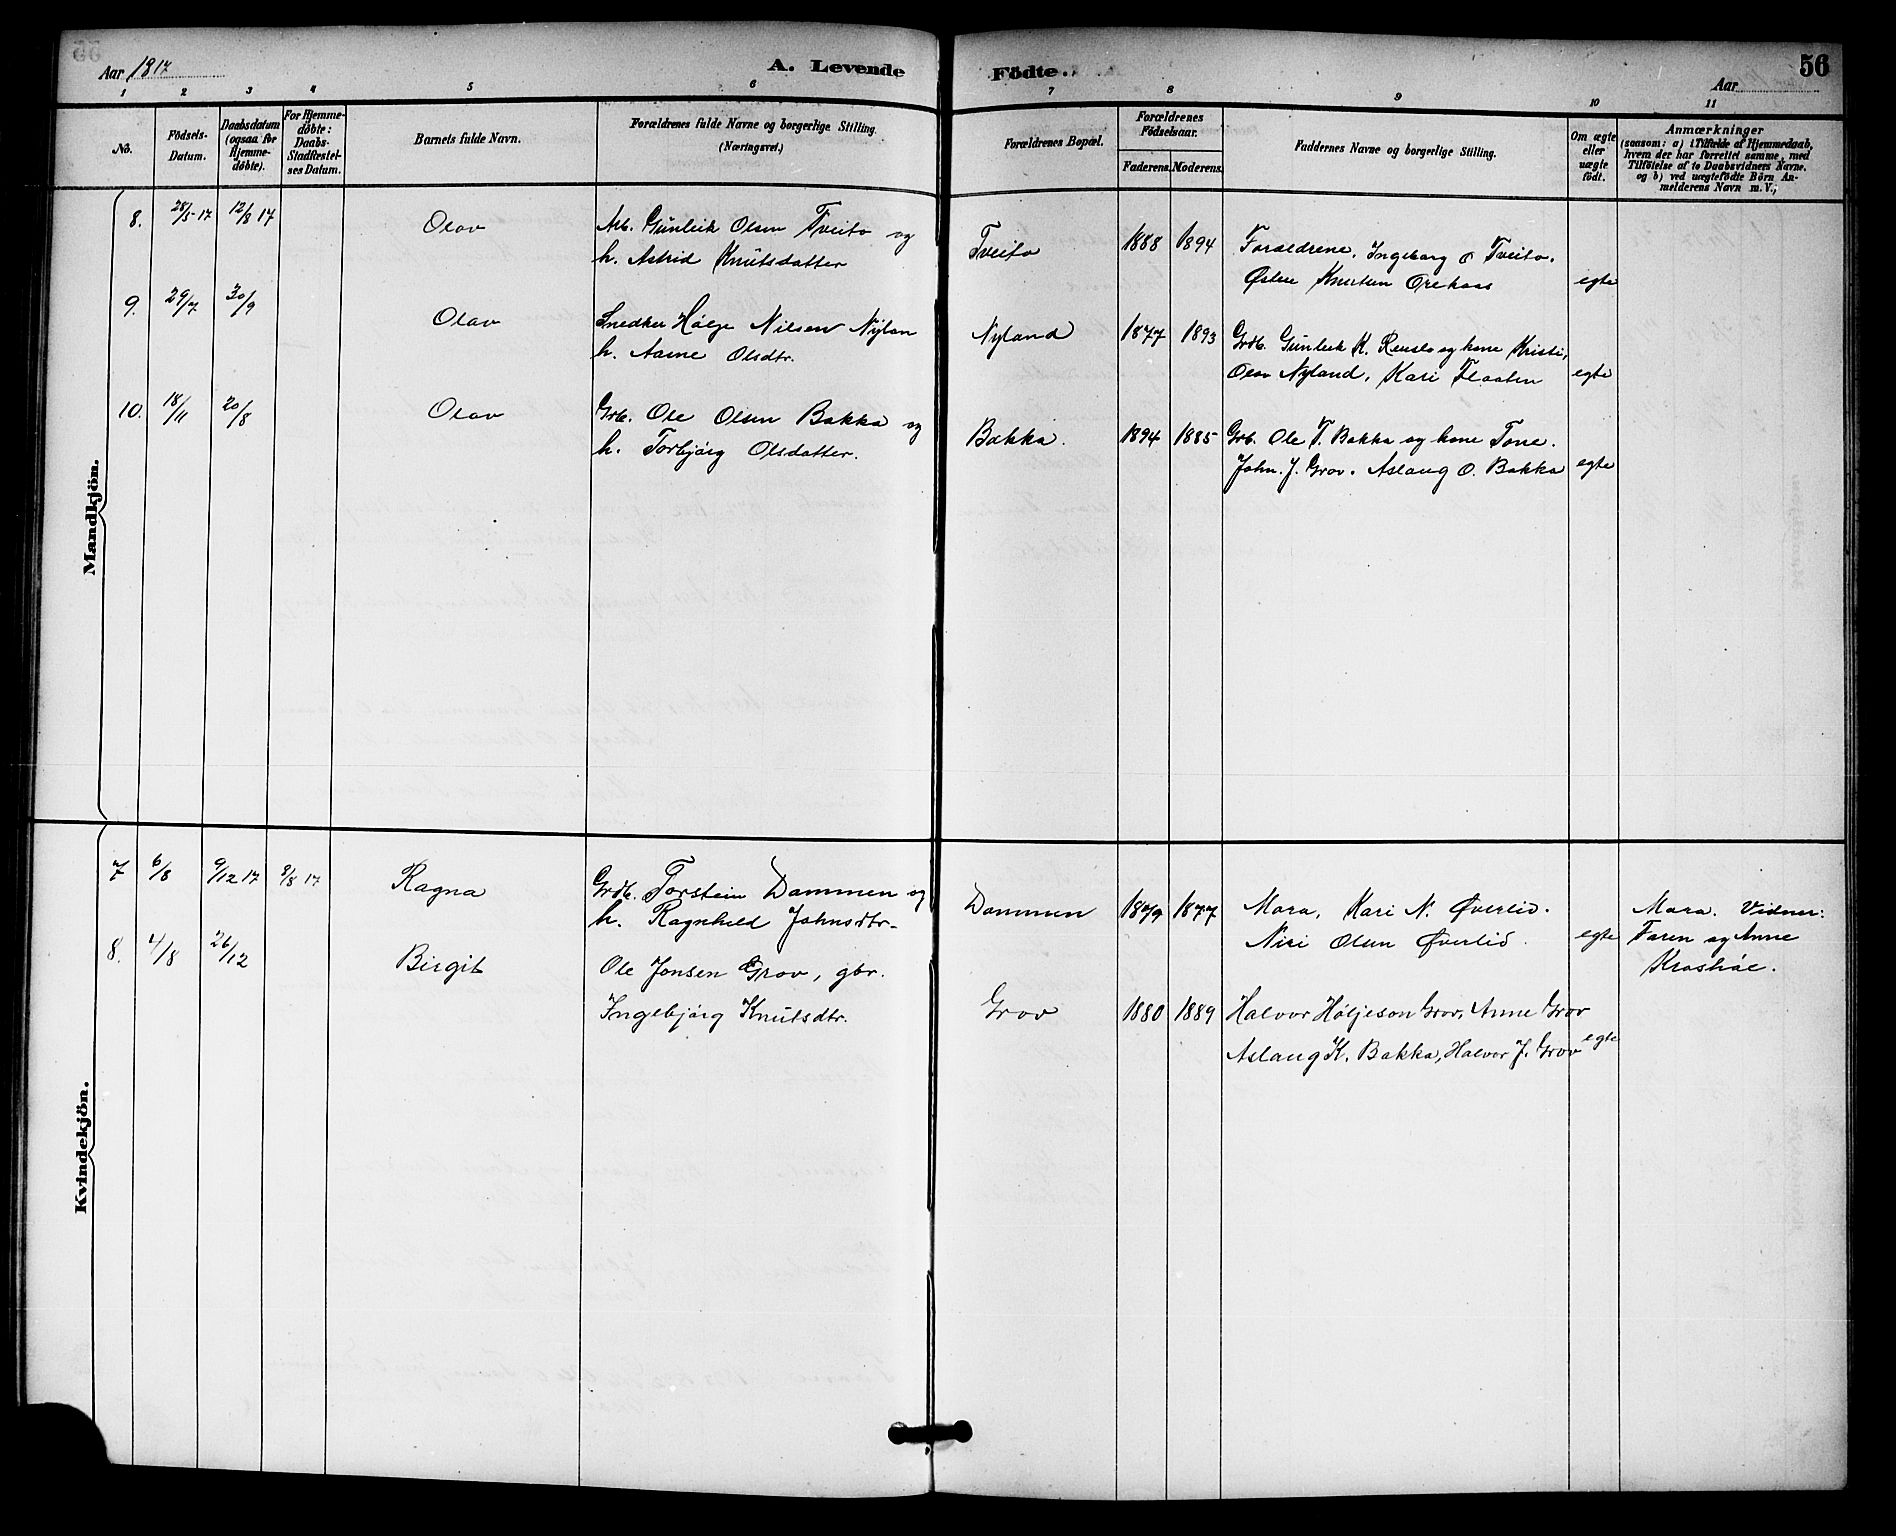 Aar 1817
A. Levende
Födte.
Aar
56
1 2 3 4 5 6 7 8 9 10 11
No.
Födsels-
Datum.
Daabsdatum
(ogsaa for
Hjemme-
döbte).
For Hjemme-
döbte:
Daabs-
Stadfæstel-
ses Datum.
Barnets fulde Navn.
Forældrenes fulde Navne og borgerlige Stilling.
(Næringsvei.)
Forældrenes Bopæl.
Forældrenes
Födselsaar.
Faderens.
Moderens.
Faddernes Navne og borgerlige Stilling.
Om ægte
eller
uægte
födt.
Anmærkninger
(saasom: a) i Tilfælde af Hjemmedaab,
hvem der har forrettet samme, med
Tilföielse af to Daabsvidners Navne.
og b) ved uægtefödte Börn An-
melderens Navn m. V.;
Mandkjön.
8. 28/5 17 12/8 17 Olav Arb. Gunleik Olsen Tveito og
h. Astrid Knutsdatter
Tveito 1888 1894 Forældrene. Ingeborg O Tveito.
Östen Knutsen egte
9. 29/7 30/9 Olav Snedker Hölje Nilsen Nylan
h. Aasne Olsdtr.
Nyland 1877 1893 Grdb. Gunleik K. og kone Kristi,
Olav Nyland, Kari Flaaten egte
10. 18/11 20/8 Olav Grb. Ole Olsen Bakka og
h. Torbjörg Olsdatter.
Bakka. 1894 1885 Grb. Ole T. Bakka og kone Tone.
John. J. Grov. Aslaug O. Bakka egte
Kvindekjön.
7 6/8 9/12 17 8/8 17 Ragna Grdb. Torstein Dammen og
h. Ragnhild Johnsdtr.
Dammen 1879 1877 Mora, Kari N. Överlid.
Nisi Olsen Överlid. egte
Mora. Vidner:
Faren og Anne
8. 4/8 26/12 Birgit Ole Jonsen Grov, gbr.
Ingebjörg Knutsdtr.
Grov 1880 1889 Halvor Höljeson Grov, Anne Grov
Aslaug K. Bakka, Halvor J. Grov egte